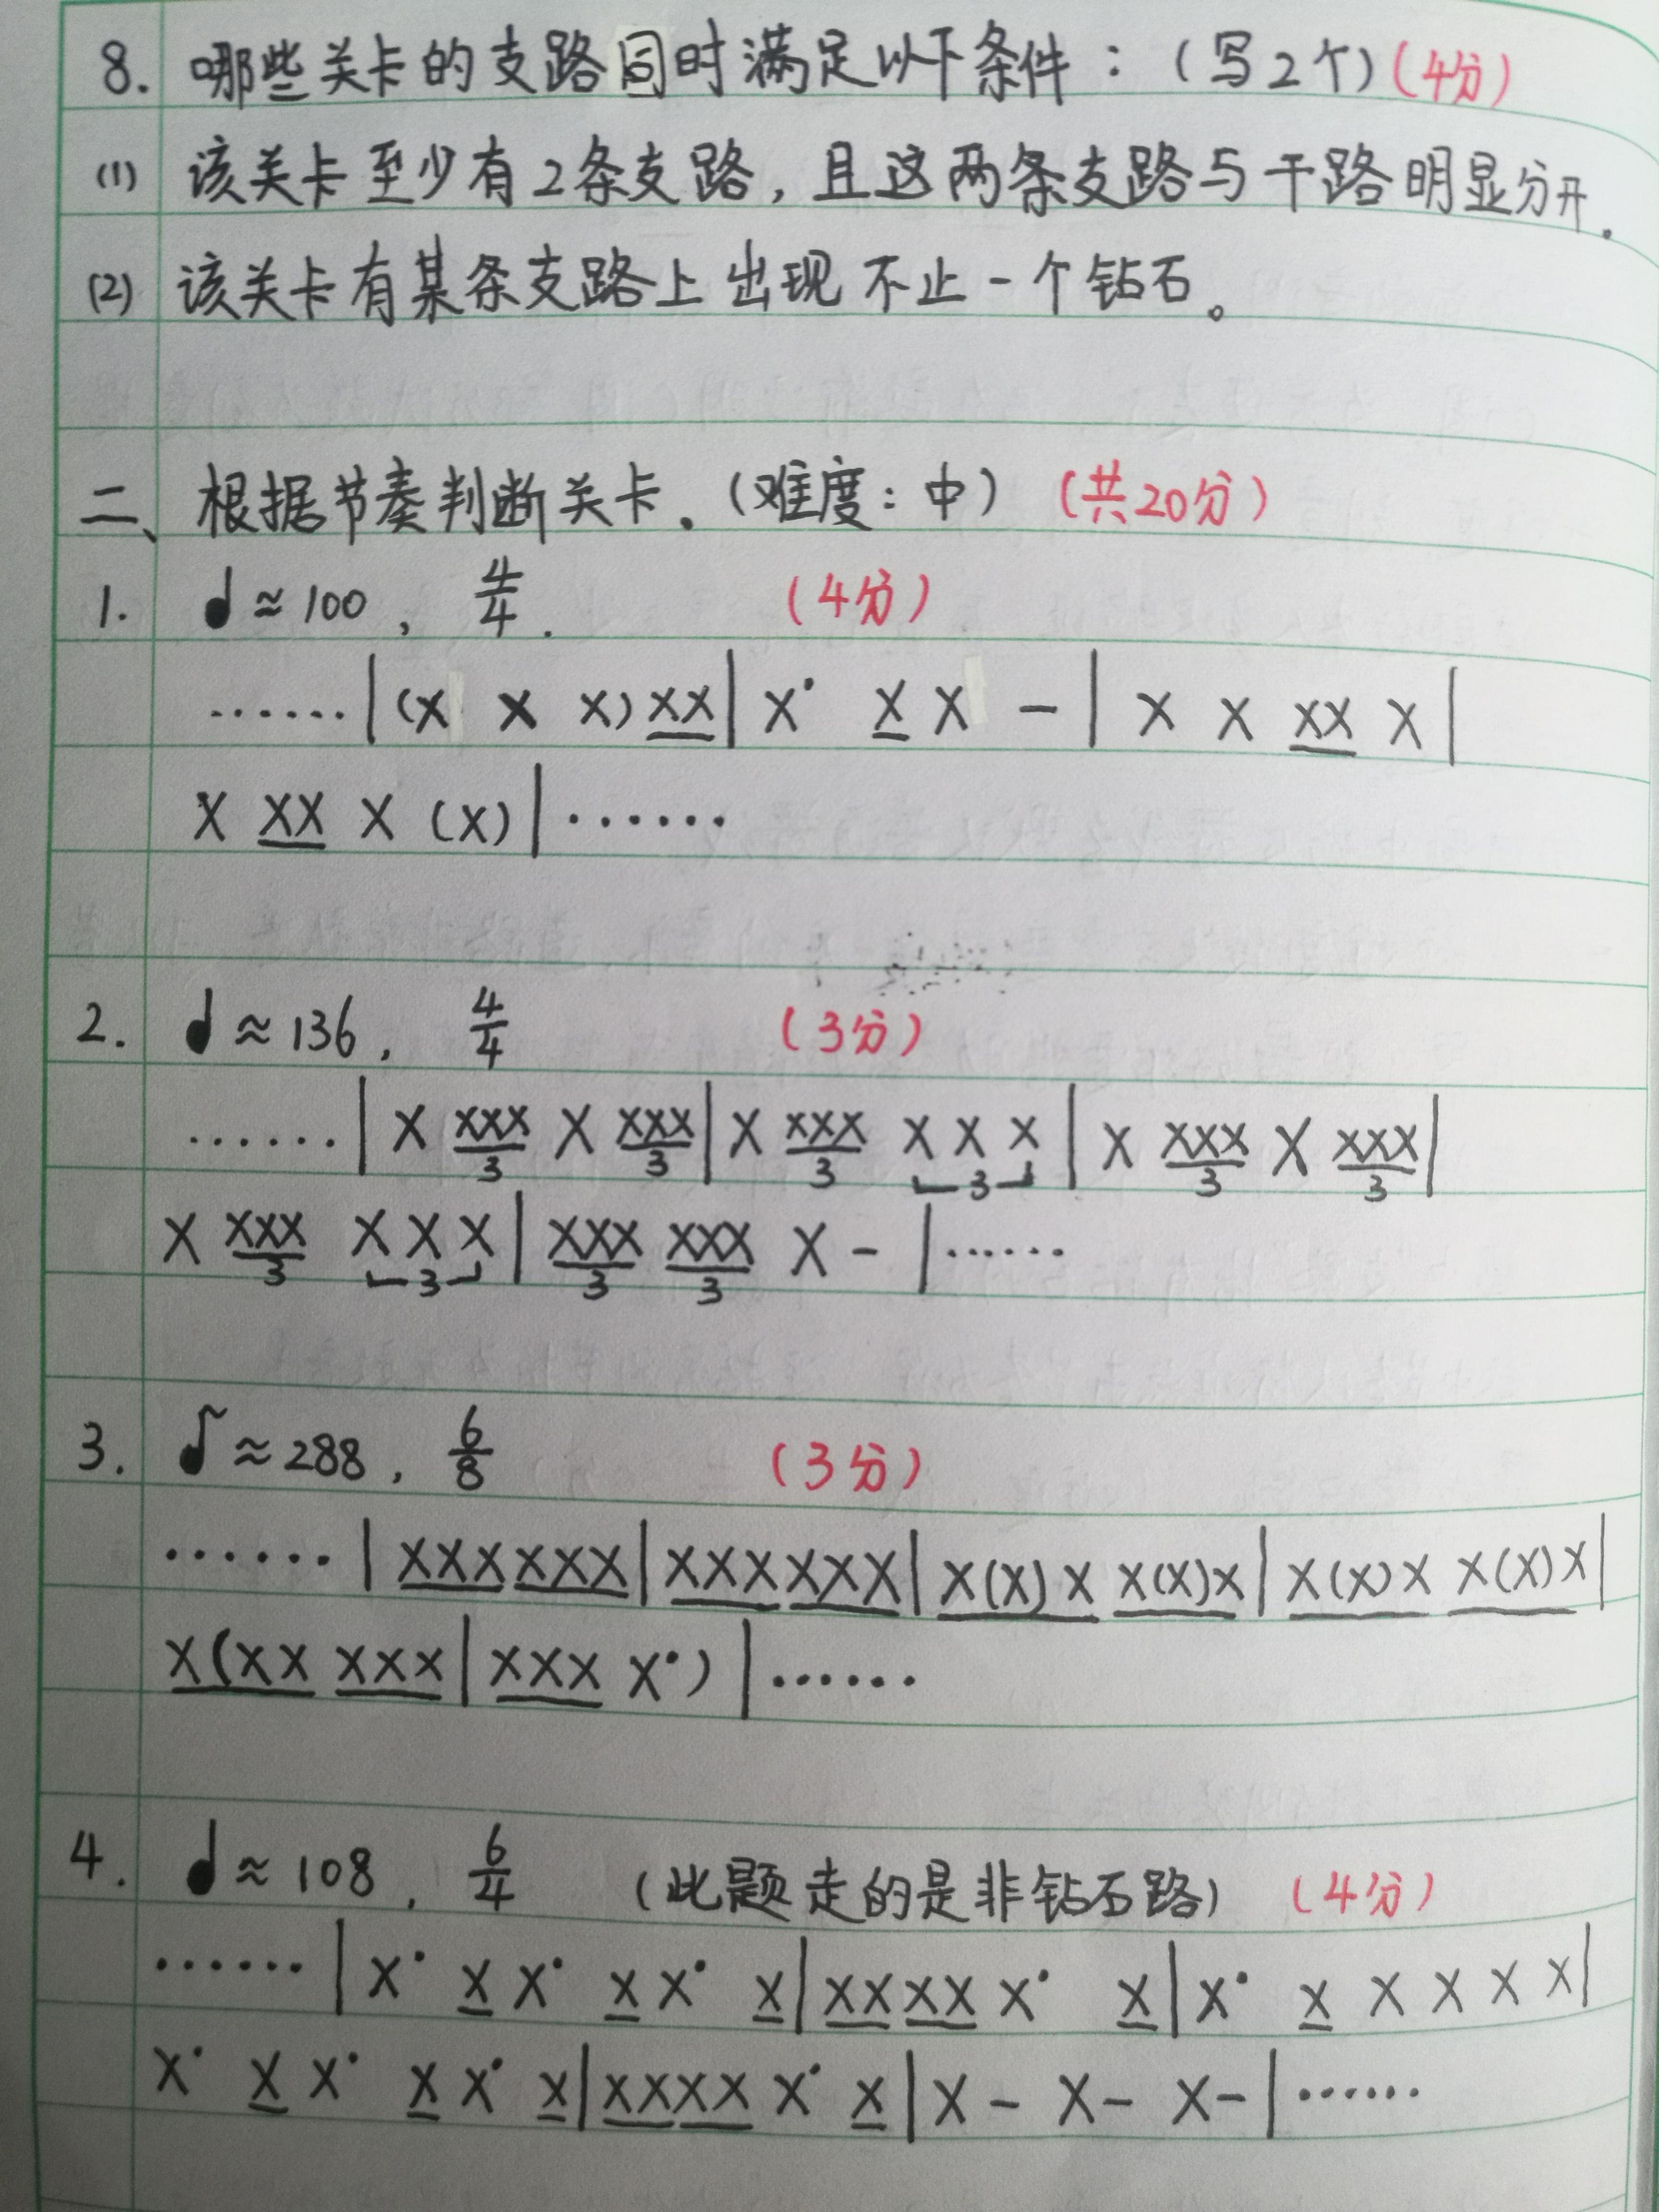 8. 哪些关卡的支路同时满足以下条件：（写2个）（4分）
(1) 该关卡至少有2条支路，且这两条支路与干路明显分开.
(2) 该关卡有某条支路上出现不止一个钻石。
二、根据节奏判断关卡.（难度：中）（共20分）
1. ♩≈100, 4/4. （4分）
……|(X X X) XX|X· X X －|X X XX X|
X XX X (X)|……
2. ♩≈136, 4/4 （3分）
……|X XXX 3 X XXX 3|X XXX 3 X X X 3|X XXX 3 X XXX 3|
X XXX 3 X X X 3|XXX 3 XXX 3 X －|……
3. ♪≈288, 6/8 （3分）
……|XXX XXX|XXX XXX|X(X)X X(X)X|X(X)X X(X)X|
X(XX XXX|XXX X·)|……
4. ♩≈108, 6/4 （此题走的是非钻石路）（4分）
……|X· X X· X X· X|XX XX X· X|X· X X X X X|
X· X X· X X· X|XX XX X· X|X － X － X －|……